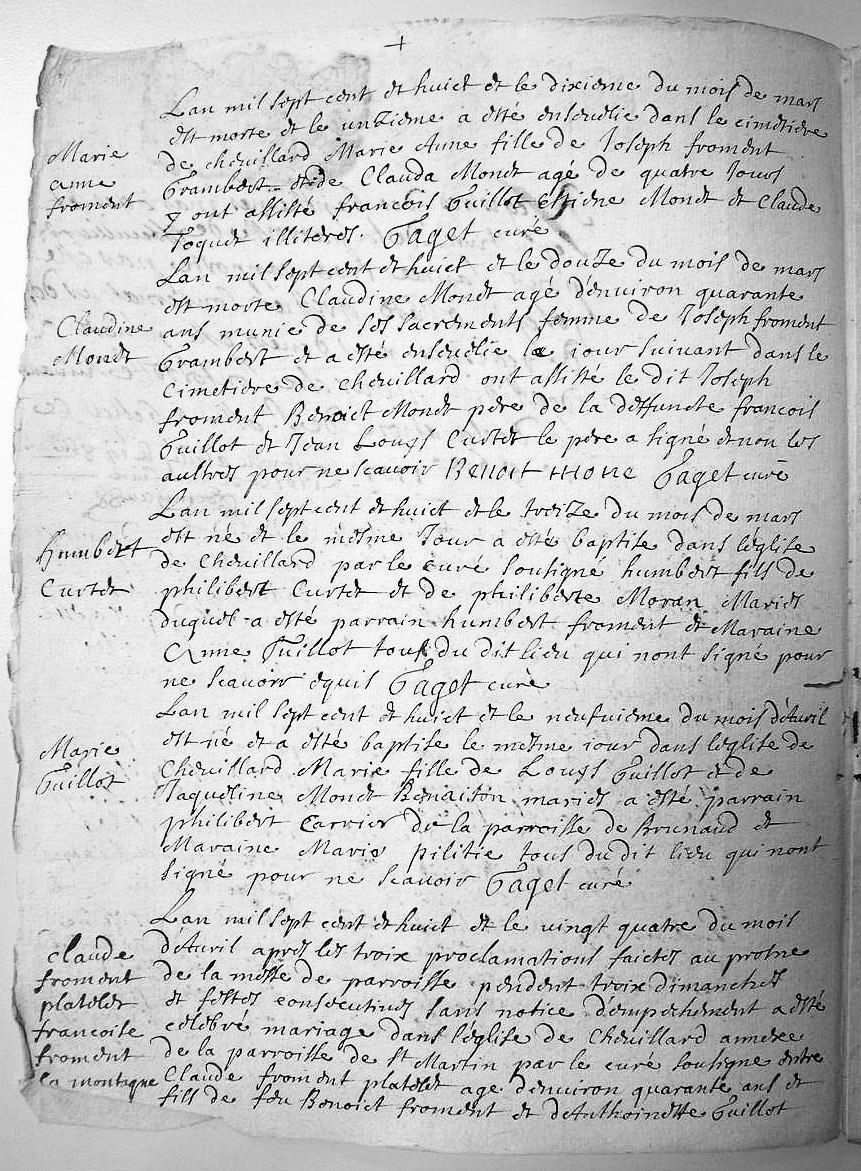 +
Lan mil sept cent et huict et le dixieme du mois de mars
est morte et le unzieme a esté enseuelie dans le cimetiere
Marie anne froment
de cheuillard Marie Anne fille de Joseph froment
Grambert et de Clauda Monet agé de quatre Jours
y ont assisté francois Guillot Estiene Monet et Claude
Joquet illiteres. Taget curé
Lan mil sept cent et huict et le douze du mois de mars
est morte Claudine Monet agé denuiron quarante
Claudine Monet
ans munie de ses sacrements femme de Joseph froment
Grambert et a esté enseuelie le jour suiuant dans le
Cimetiere de cheuillard ont assisté le dit Joseph
froment Benoict Monet pere de la deffuncte francois
Guillot et Jean Louys Curtet le pere a signé et non les
aultres pour ne scauoir Benoit mone Taget curé
Lan mil sept cent et huict et le treize du mois de mars
Humbert Curtet
est né et le mesme Jour a esté baptise dans leglise
de Cheuillard par le curé sousigné humbert fils de
philibert Curtet et de philiberte Moran Mariés
duquel a esté parrain humbert froment et Maraine
Anne Guillot tous du dit lieu qui nont signé pour
ne scauoir Taget curé
Lan mil sept cent et huict et le neufuieme du mois dAuril
Marie Guillot
est né et a esté baptise le mesme iour dans leglise de
Cheuillard Marie fille de Louys Guillot et de
Jaqueline Monet Benaiton mariés a esté parrain
philibert Carrier de la parroisse de Brenaud et
Maraine Marie pilitie tous du dit lieu qui nont
signé pour ne scauoir Taget curé
Lan mil sept cent et huict et le vingt quatre du mois
claude froment platelet francoise froment la montagne
dAuril apres les troix proclamations faictes au prosne
de la messe de parroisse pendent troix dimanches
et festes consecutiues sans notice dempechement a esté
celebré mariage dans leglise de Cheuillard annexe
de la parroisse de St Martin par le curé sousigné entre
Claude froment platelet age denuiron quarante ans et
fill de feu Benoict froment et dAnthoinette Guillot